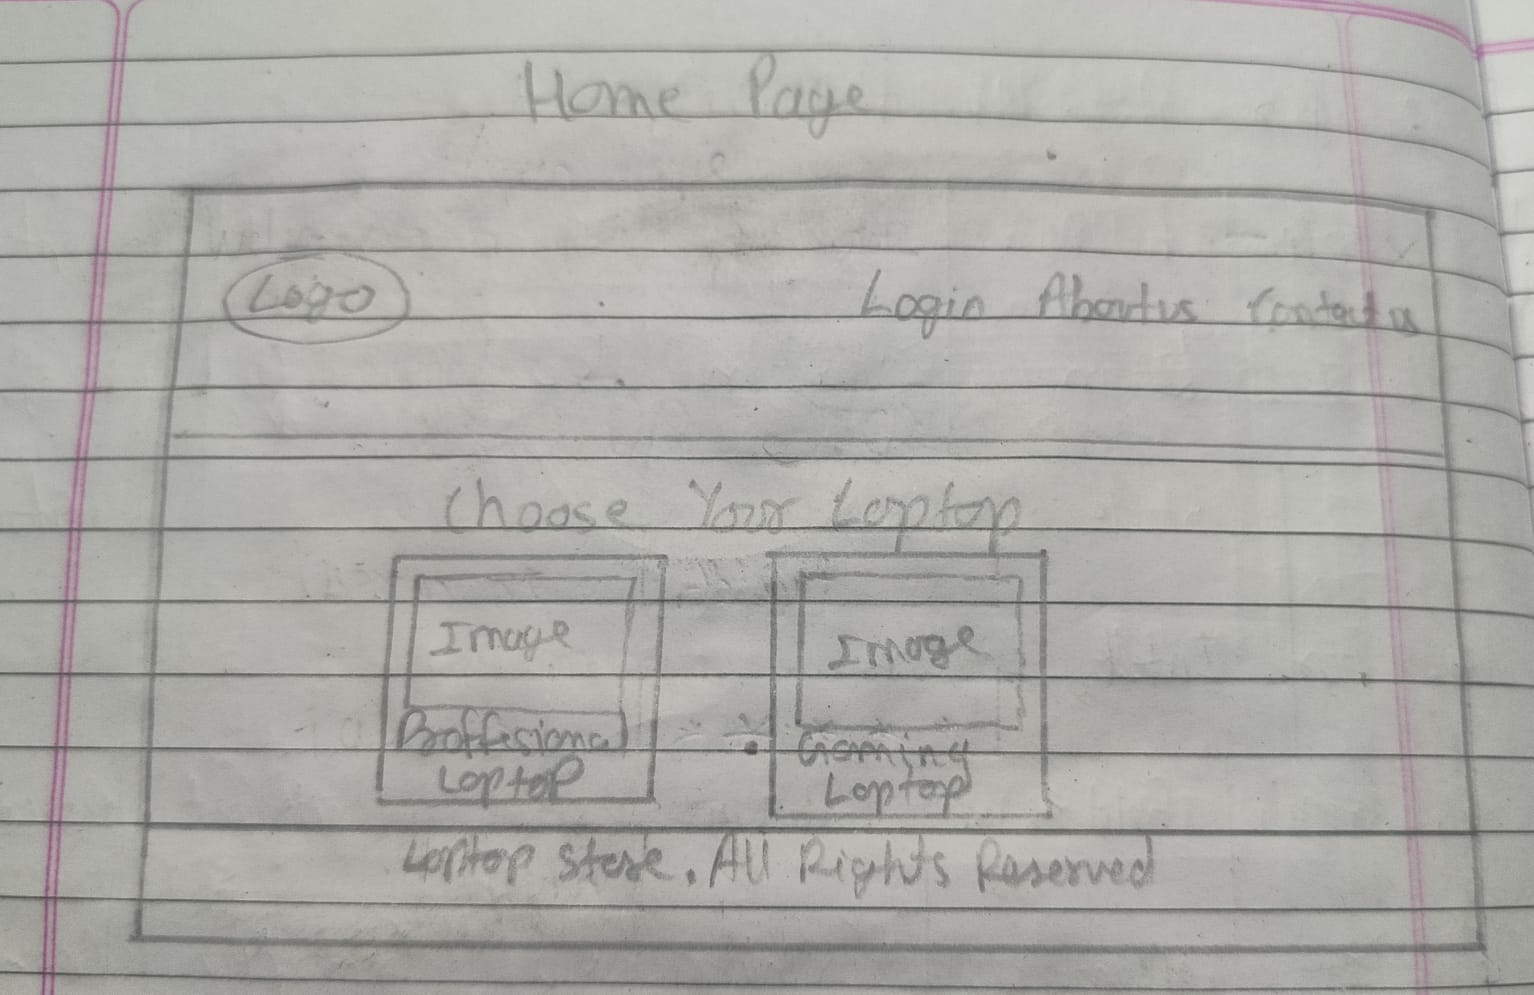 Home Page
Logo
Login About us Contact us
Choose Your Laptop
Image
Proffesional
Laptop
Image
Gaming
Laptop
Laptop store. All Rights Reserved